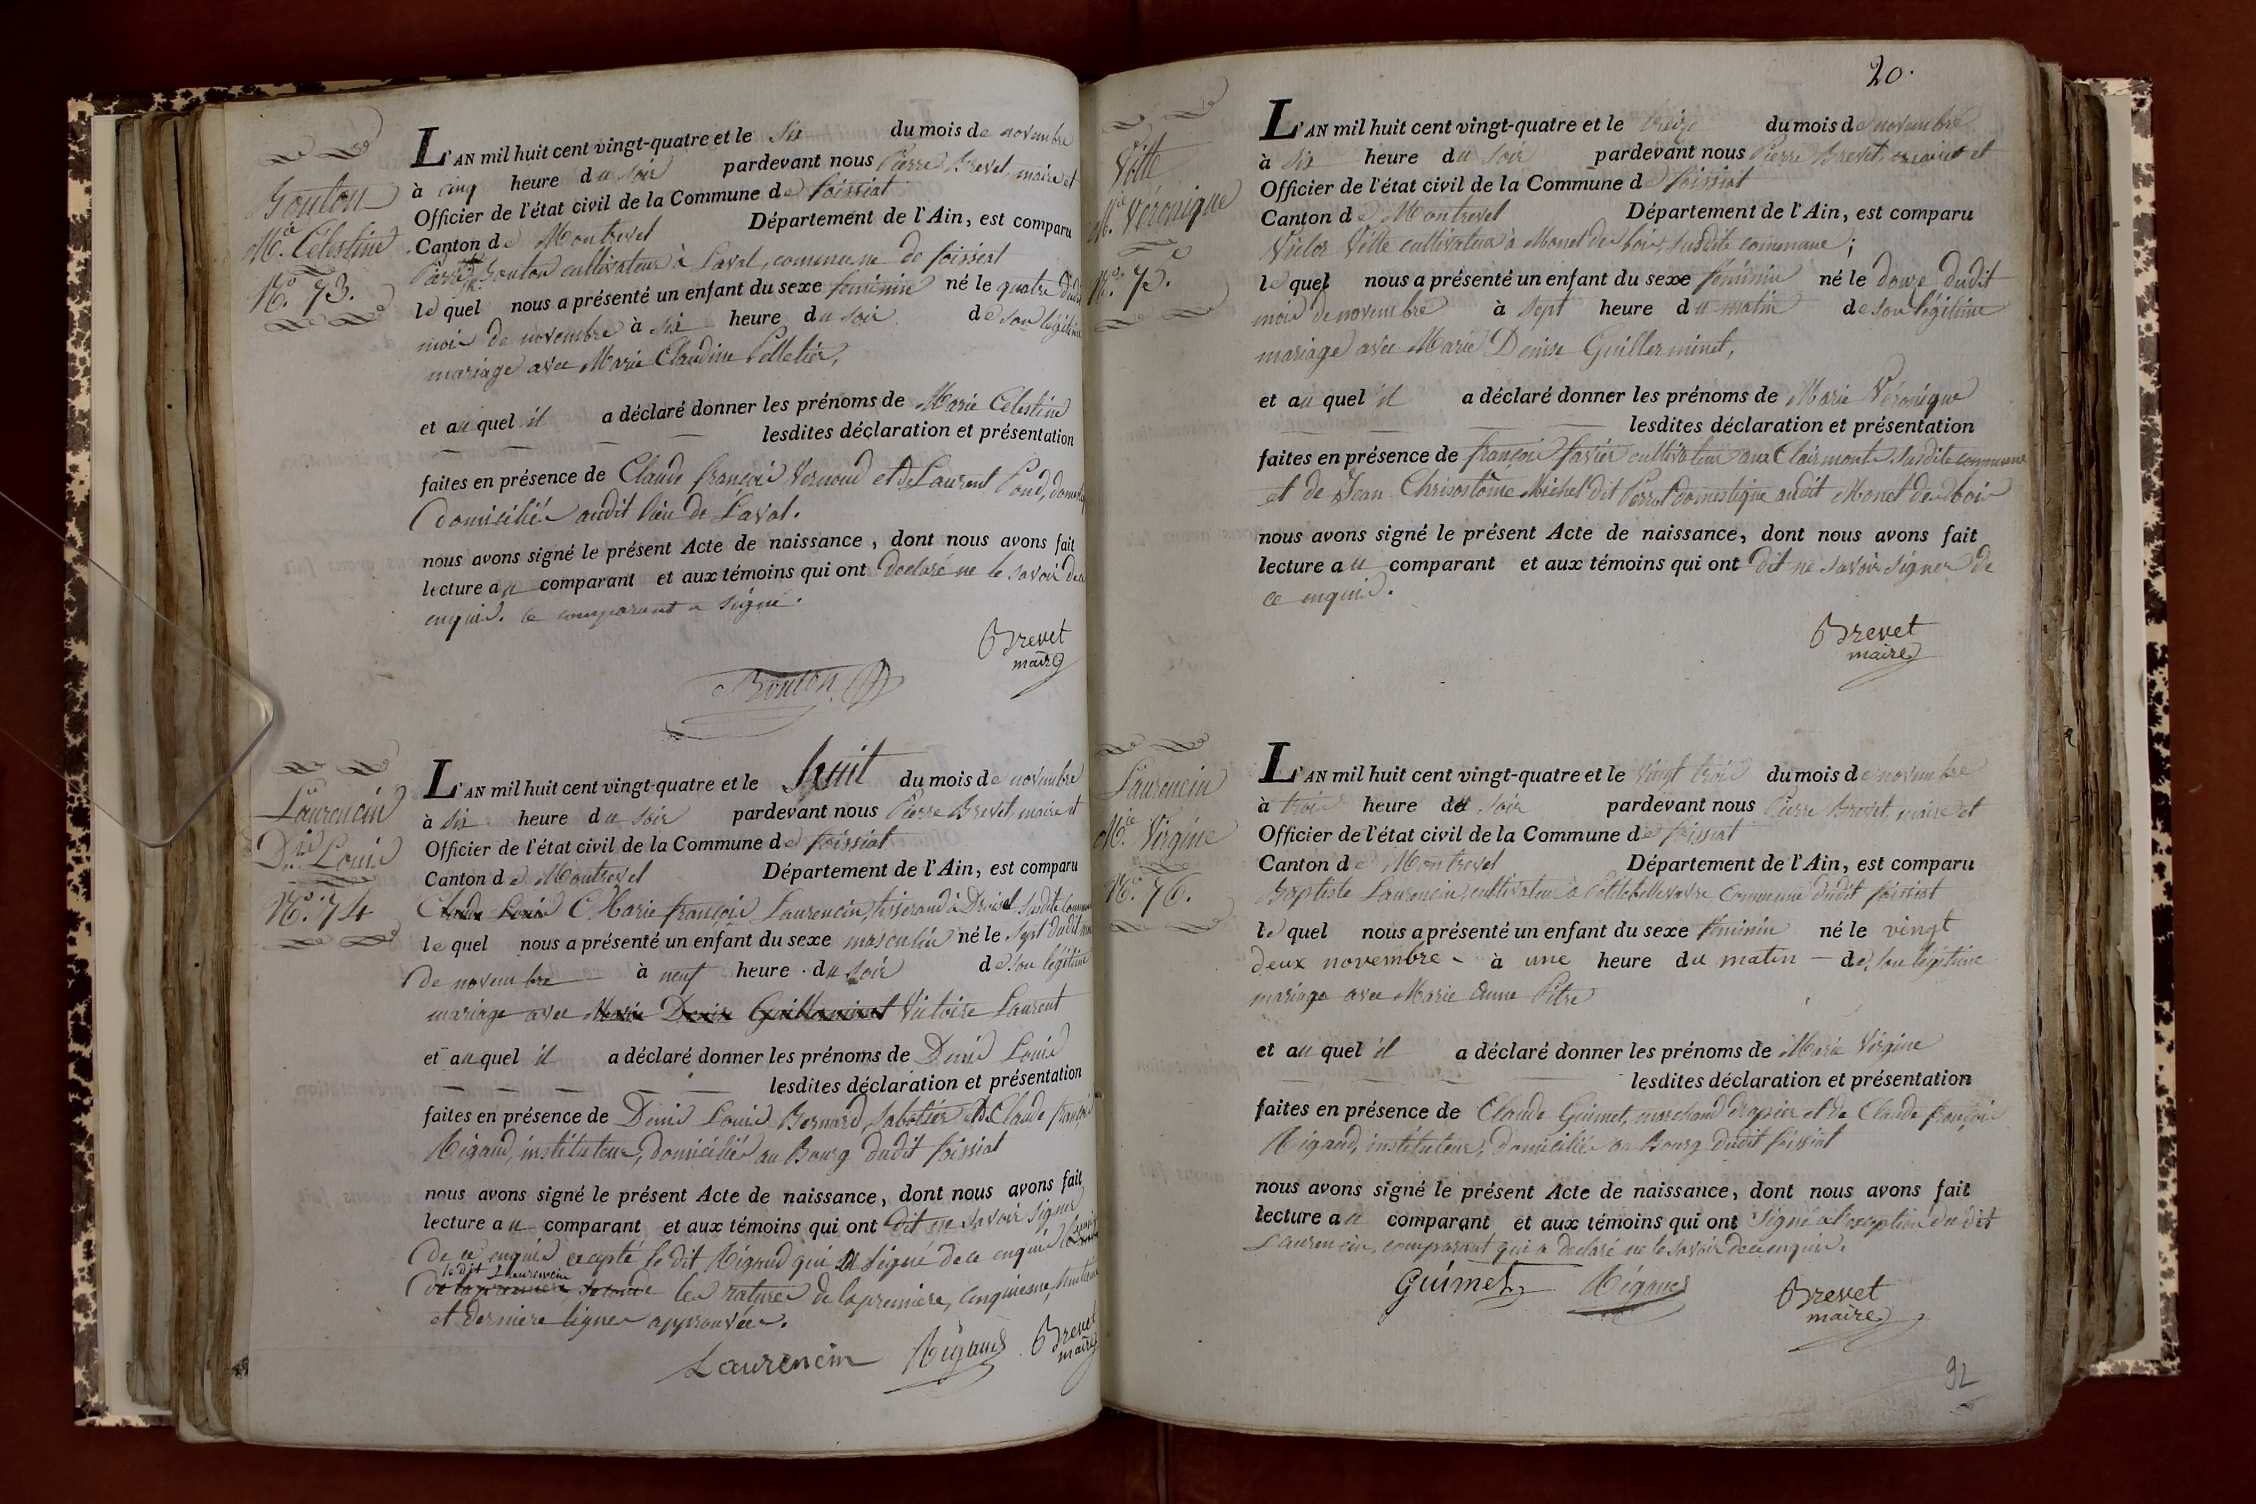 Bouton
Mie. Célestine
No. 73.
L'AN mil huit cent vingt-quatre et le six du mois de novembre
à cinq heure du soir pardevant nous Pierre Brevet, maire et
Officier de l'état civil de la Commune de foissiat
Canton de Montrevel Département de l'Ain, est comparu
Pierre Bouton cultivateur à Laval, commune de foissiat
lequel nous a présenté un enfant du sexe féminin né le quatre dudit
mois de novembre à six heure du soir de son légitime
mariage avec Marie Claudine Pelletier,
et auquel il a déclaré donner les prénoms de Marie Célestine
lesdites déclaration et présentation
faites en présence de Claude françois Vernoud et de Laurent
domiciliés audit lieu de Laval.
nous avons signé le présent Acte de naissance, dont nous avons fait
lecture au comparant et aux témoins qui ont declaré ne le savoir de ce
enquis. le comparant a signé.
Brevet
maire
Bouton
Laurencin
Dis Louis
No. 74
L'AN mil huit cent vingt-quatre et le huit du mois de novembre
à six heure du soir pardevant nous Pierre Brevet, maire et
Officier de l'état civil de la Commune de foissiat
Canton de Montrevel Département de l'Ain, est comparu
Claude Louis C. Marie françois Laurencin, tisserand à susdite commune
lequel nous a présenté un enfant du sexe masculin né le sept dudit mois
de novembre à neuf heure du soir de son légitime
mariage avec Marie Denise Guillerminet Victoire Laurent
et auquel il a déclaré donner les prénoms de Denis Louis
lesdites déclaration et présentation
faites en présence de Denis Louis Bernard, sabotier et de Claude françois
Rigaud, instituteur, domiciliés au Bourg dudit foissiat
nous avons signé le présent Acte de naissance, dont nous avons fait
lecture au comparant et aux témoins qui ont dit ne savoir signer
de ce enquis excepté le dit Rigaud qui a signé de ce enquis
le dit Laurencin
de la premiere, seconde les ratures de la premiere, cinquieme, huitieme
et derniere lignes approuvées.
Laurencin Rigaud Brevet
maire
20.
Vitte
Mie. Véronique
No. 75.
L'AN mil huit cent vingt-quatre et le treize du mois de novembre
à six heure du soir pardevant nous Pierre Brevet, maire et
Officier de l'état civil de la Commune de foissiat
Canton de Montrevel Département de l'Ain, est comparu
Victor Vitte cultivateur à Monet des bois, susdite commune;
lequel nous a présenté un enfant du sexe féminin né le douze dudit
mois de novembre à sept heure du matin de son légitime
mariage avec Marie Denise Guillerminet,
et auquel il a déclaré donner les prénoms de Marie Véronique
lesdites déclaration et présentation
faites en présence de françois favier cultivateur aux Clairmonts susdite commune
et de Jean Chrisostôme Michel dit Perret domestique audit Monet des bois
nous avons signé le présent Acte de naissance, dont nous avons fait
lecture au comparant et aux témoins qui ont dit ne savoir signer de
ce enquis.
Brevet
maire
Laurencin
Mie. Virgine
No. 76.
L'AN mil huit cent vingt-quatre et le vingt trois du mois de novembre
à trois heure du soir pardevant nous Pierre Brevet, maire et
Officier de l'état civil de la Commune de foissiat
Canton de Montrevel Département de l'Ain, est comparu
Baptiste Laurencin, cultivateur à commune dudit foissiat
lequel nous a présenté un enfant du sexe féminin né le vingt
deux novembre à une heure du matin de son légitime
mariage avec Marie Anne Pitre
et auquel il a déclaré donner les prénoms de Marie Virgine
lesdites déclaration et présentation
faites en présence de Claude Guimet, marchand drapier et de Claude françois
Rigaud, instituteur, domiciliés au Bourg dudit foissiat
nous avons signé le présent Acte de naissance, dont nous avons fait
lecture au comparant et aux témoins qui ont signé à l'exception du dit
Laurencin, comparant qui a declaré ne le savoir de ce enquis.
Guimet Rigaud Brevet
maire
92